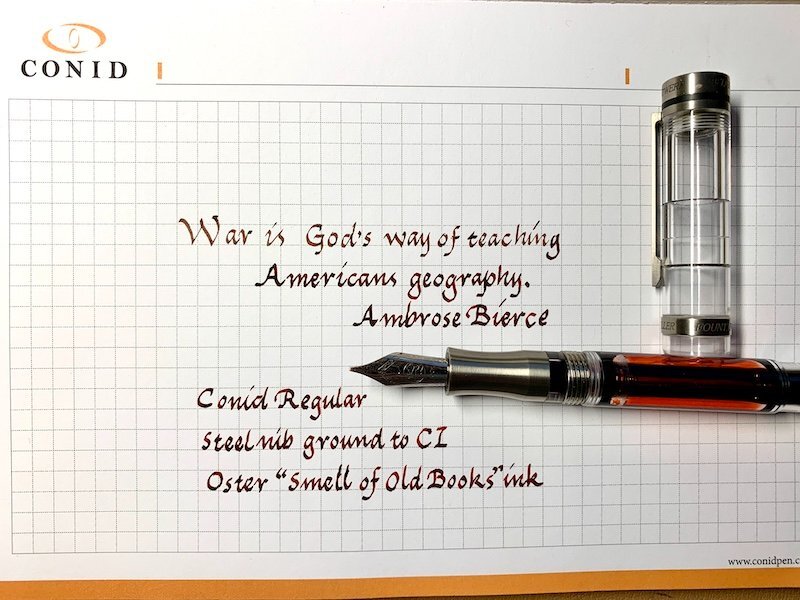 CONID
War is God's way of teaching
Americans geography.
Ambrose Bierce
Conid Regular
Steel nib ground to CI
Oster "Smell of Old Books" ink
FOUNT
www.conidpen.c